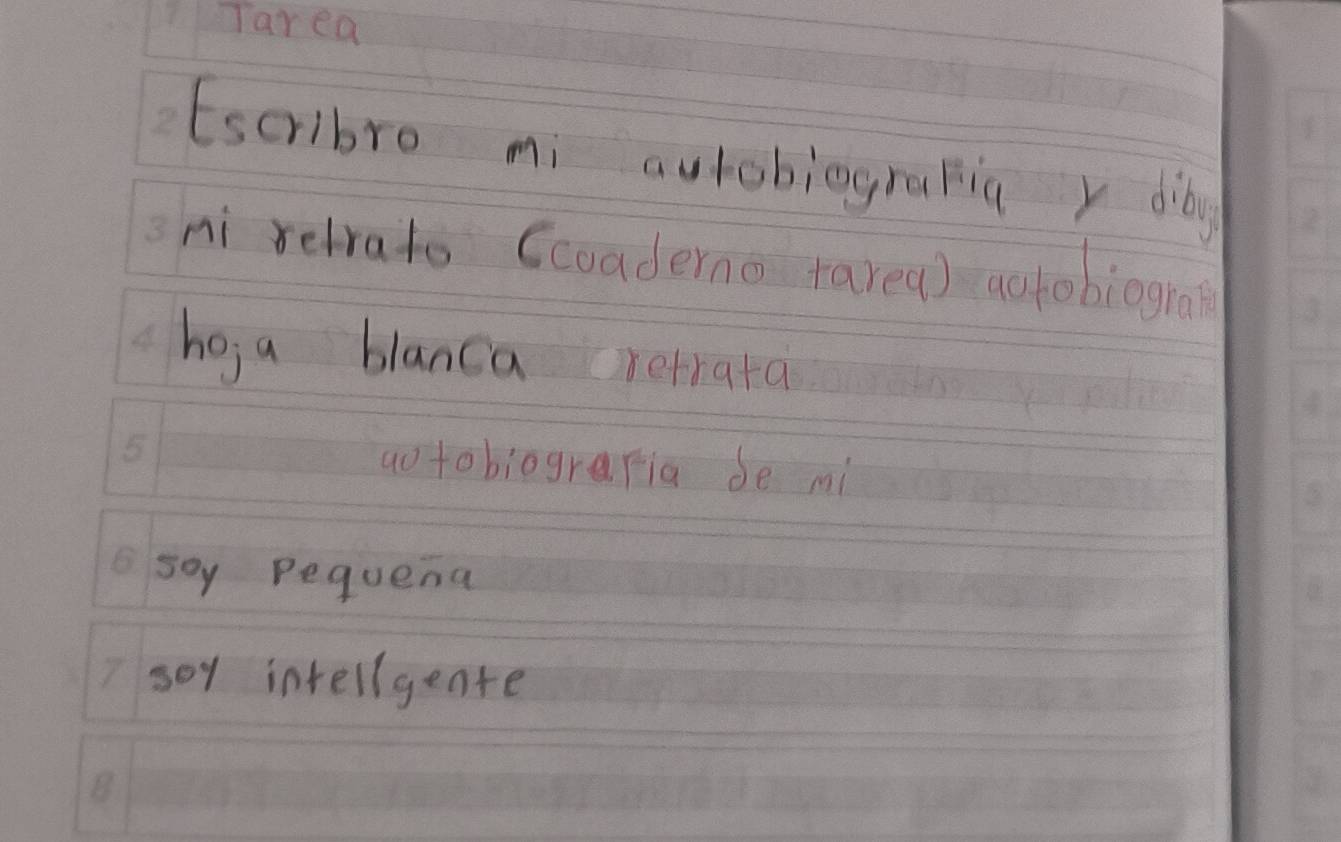 1 Tarea
2 Escribro mi autobiografia y dibujo
3 mi retrato (coaderno tarea) aotobiografi
4 hoja blanca retrata
5 aotobiografia de mi
6 soy Pequeña
7 soy intellgente
8